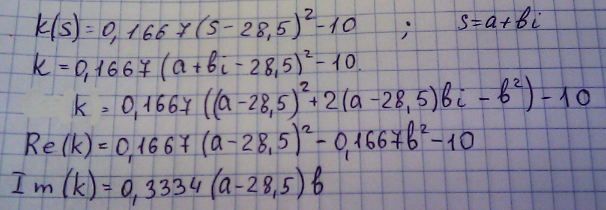 k(s)=0,1667(s-28,5)²-10 ; s=a+bi
k=0,1667(a+bi-28,5)²-10.
k=0,1667((a-28,5)²+2(a-28,5)bi-b²)-10
Re(k)=0,1667(a-28,5)²-0,1667b²-10
Im(k)=0,3334(a-28,5)b